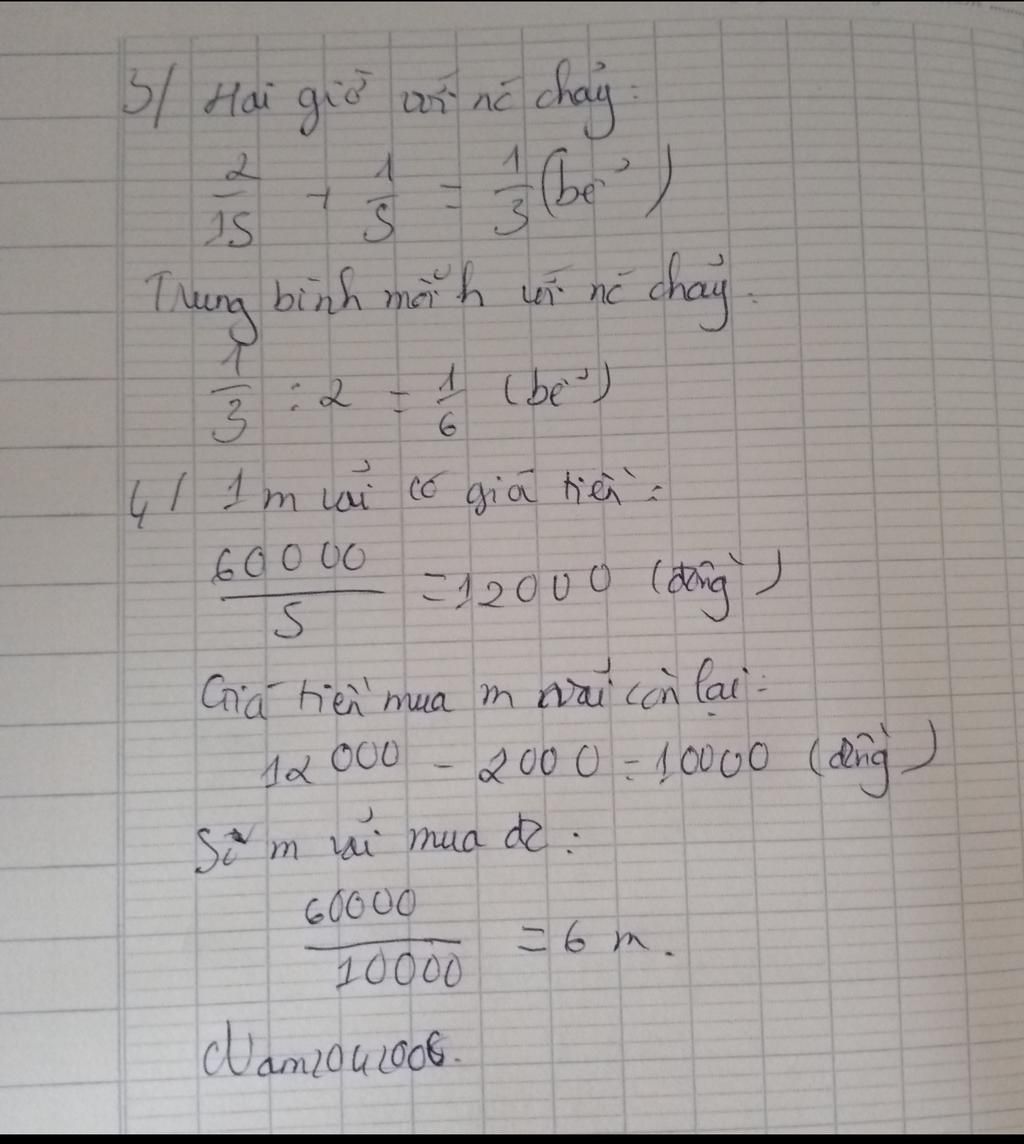 3/ Hai giờ vòi nc chảy:
2/15 + 1/5 = 1/3 (bể)
Trung bình mỗi h vòi nc chảy:
1/3 : 2 = 1/6 (bể)
4/ 1m vải có giá tiền:
60000/5 = 12000 (đồng)
Giá tiền mua m vải còn lại:
12000 - 2000 = 10000 (đồng)
Số m vải mua đc:
60000/10000 = 6 m.
Nam2042006.